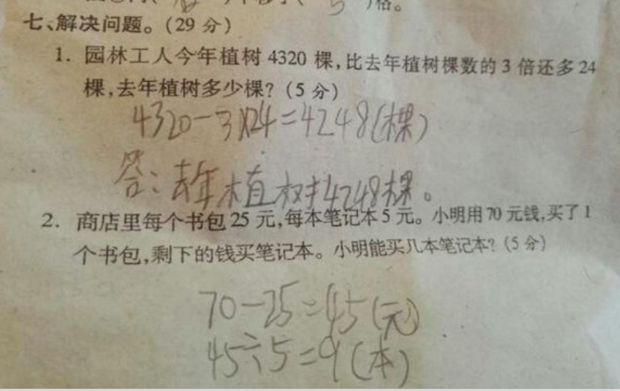 七、解决问题。(29分)
1. 园林工人今年植树4320棵,比去年植树棵数的3倍还多24
棵,去年植树多少棵?(5分)
4320-3×24=4248(棵)
答:去年植树4248棵。
2. 商店里每个书包25元,每本笔记本5元。小明用70元钱,买了1
个书包,剩下的钱买笔记本。小明能买几本笔记本?(5分)
70-25=45(元)
45÷5=9(本)